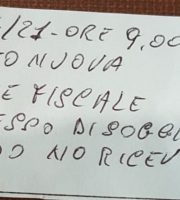 /21-ORE 9,00
TO NUOVA
E FISCALE
ESSO DI SOGGI
DO NO RICEV